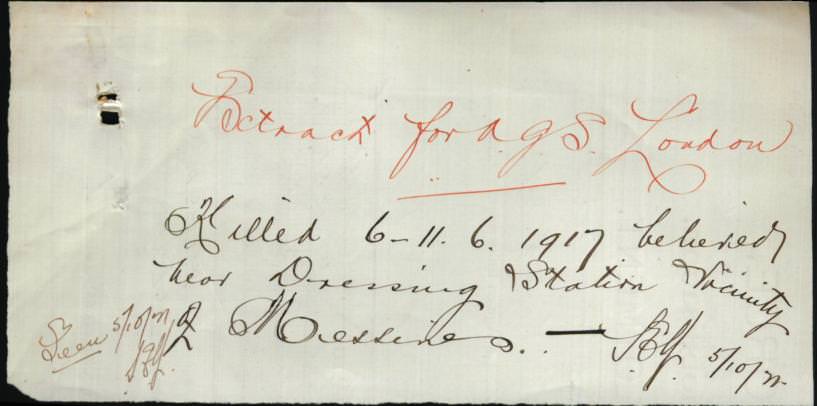 Extract for A.G.S. London
Killed 6-11. 6. 1917 believed
near Dressing Station Vicinity
of Messines. —
5/10/21
Seen 5/10/21